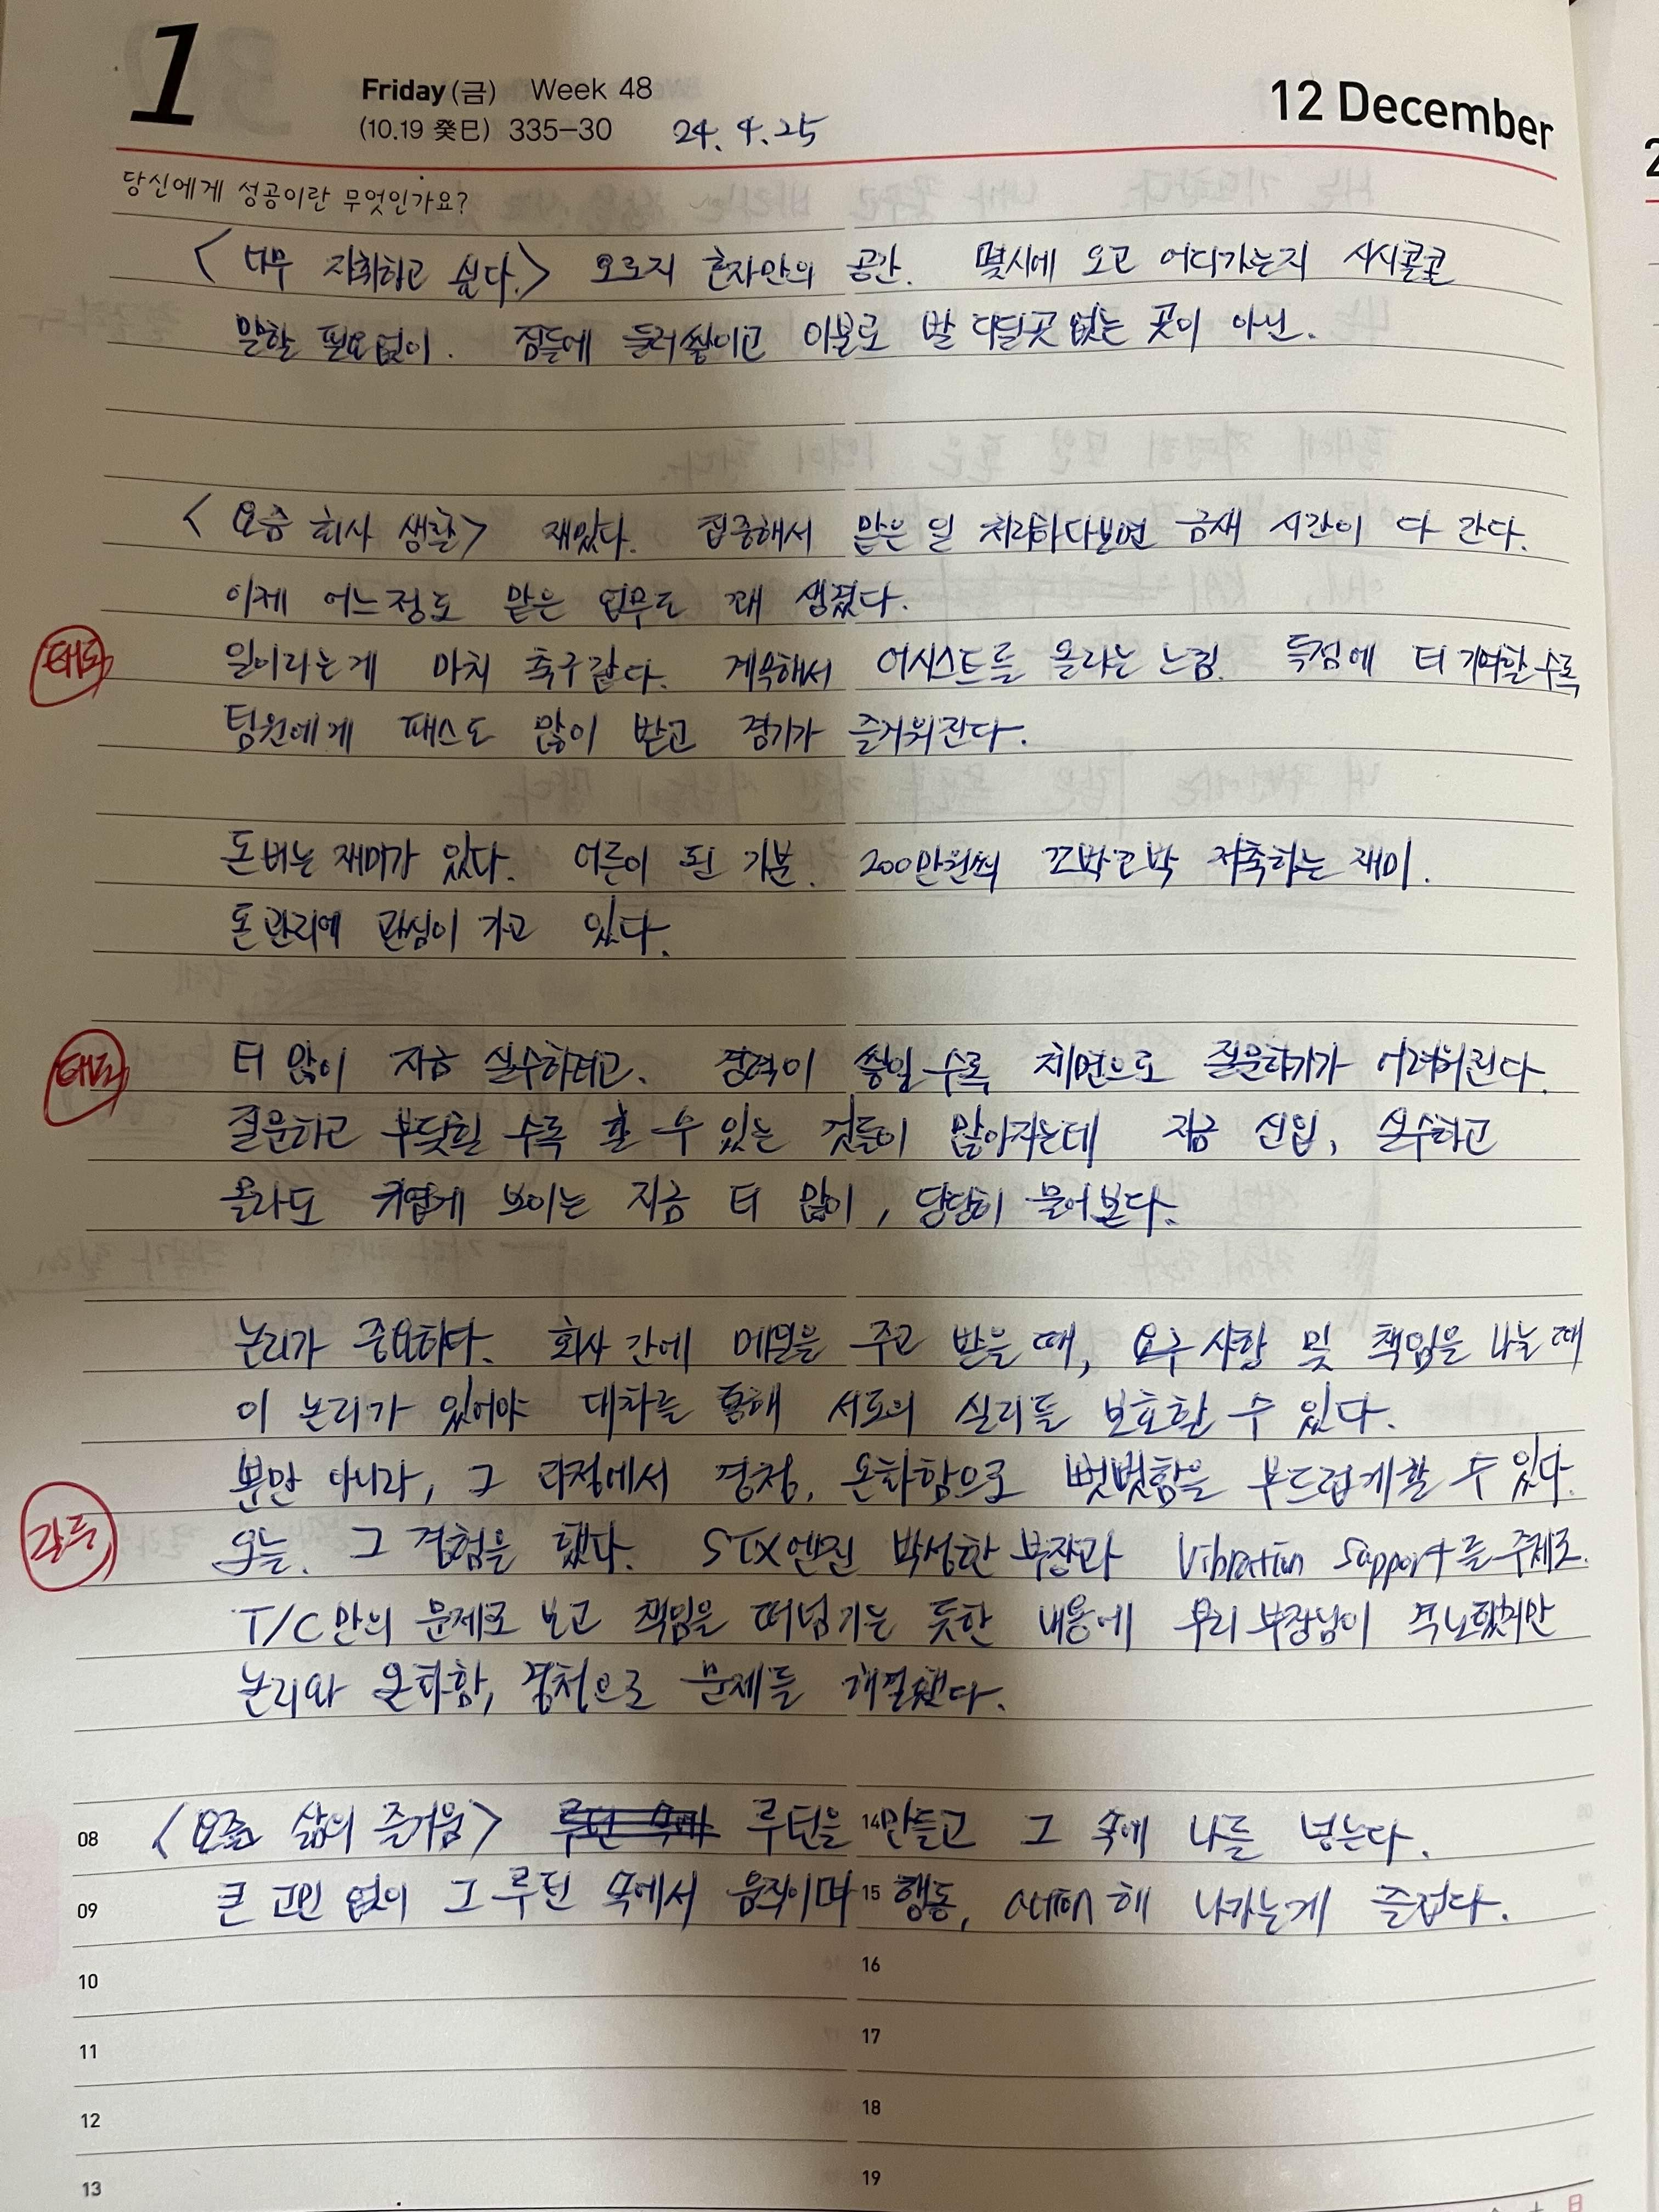 1
Friday (금) Week 48
(10.19 癸巳) 335-30 24. 4. 25
12 December
당신에게 성공이란 무엇인가요?
<너무 자취하고 싶다.> 오로지 혼자만의 공간. 몇시에 오고 어디가는지 시시콜콜
말할 필요없이. 짐들에 둘러쌓이고 이불로 발 디딜곳 없는 곳이 아닌.
<요즘 회사 생활> 재밌다. 집중해서 맡은 일 처리하다보면 금새 시간이 다 간다.
이제 어느정도 맡은 업무도 꽤 생겼다.
태도
일이라는게 마치 축구같다. 계속해서 어시스트를 올리는 느낌. 득점에 더 기여할수록
팀원에게 패스도 많이 받고 경기가 즐거워진다.
돈버는 재미가 있다. 어른이 된 기분. 200만원씩 꼬박꼬박 저축하는 재미.
돈관리에 관심이 가고 있다.
태도
더 많이 지금 실수하려고. 경력이 쌓일 수록 체면으로 질문하기가 어려워진다.
질문하고 부딪힐 수록 할 수 있는 것들이 많아지는데 지금 신입, 실수하고
몰라도 귀엽게 보이는 지금 더 많이, 당당히 물어본다.
논리가 중요하다. 회사 간에 메일을 주고 받을 때, 요구 사항 및 책임을 나눌 때
이 논리가 있어야 대화를 통해 서로의 실리를 보호할 수 있다.
뿐만 아니라, 그 과정에서 경청, 온화함으로 뻣뻣함을 부드럽게할 수 있다.
갈등
오늘. 그 경험을 했다. STX엔진 박성한 부장과 Vibration Support를 주제로.
T/C만의 문제로 보고 책임을 떠넘기는 듯한 내용에 우리 부장님이 격노했지만
논리와 온화함, 경청으로 문제를 해결했다.
08 <요즘 삶의 즐거움> 루틴을 14 만들고 그 속에 나를 넣는다.
09 큰 고민 없이 그 루틴 속에서 움직이며 15 행동, action 해 나가는게 즐겁다.
10 16
11 17
12 18
13 19